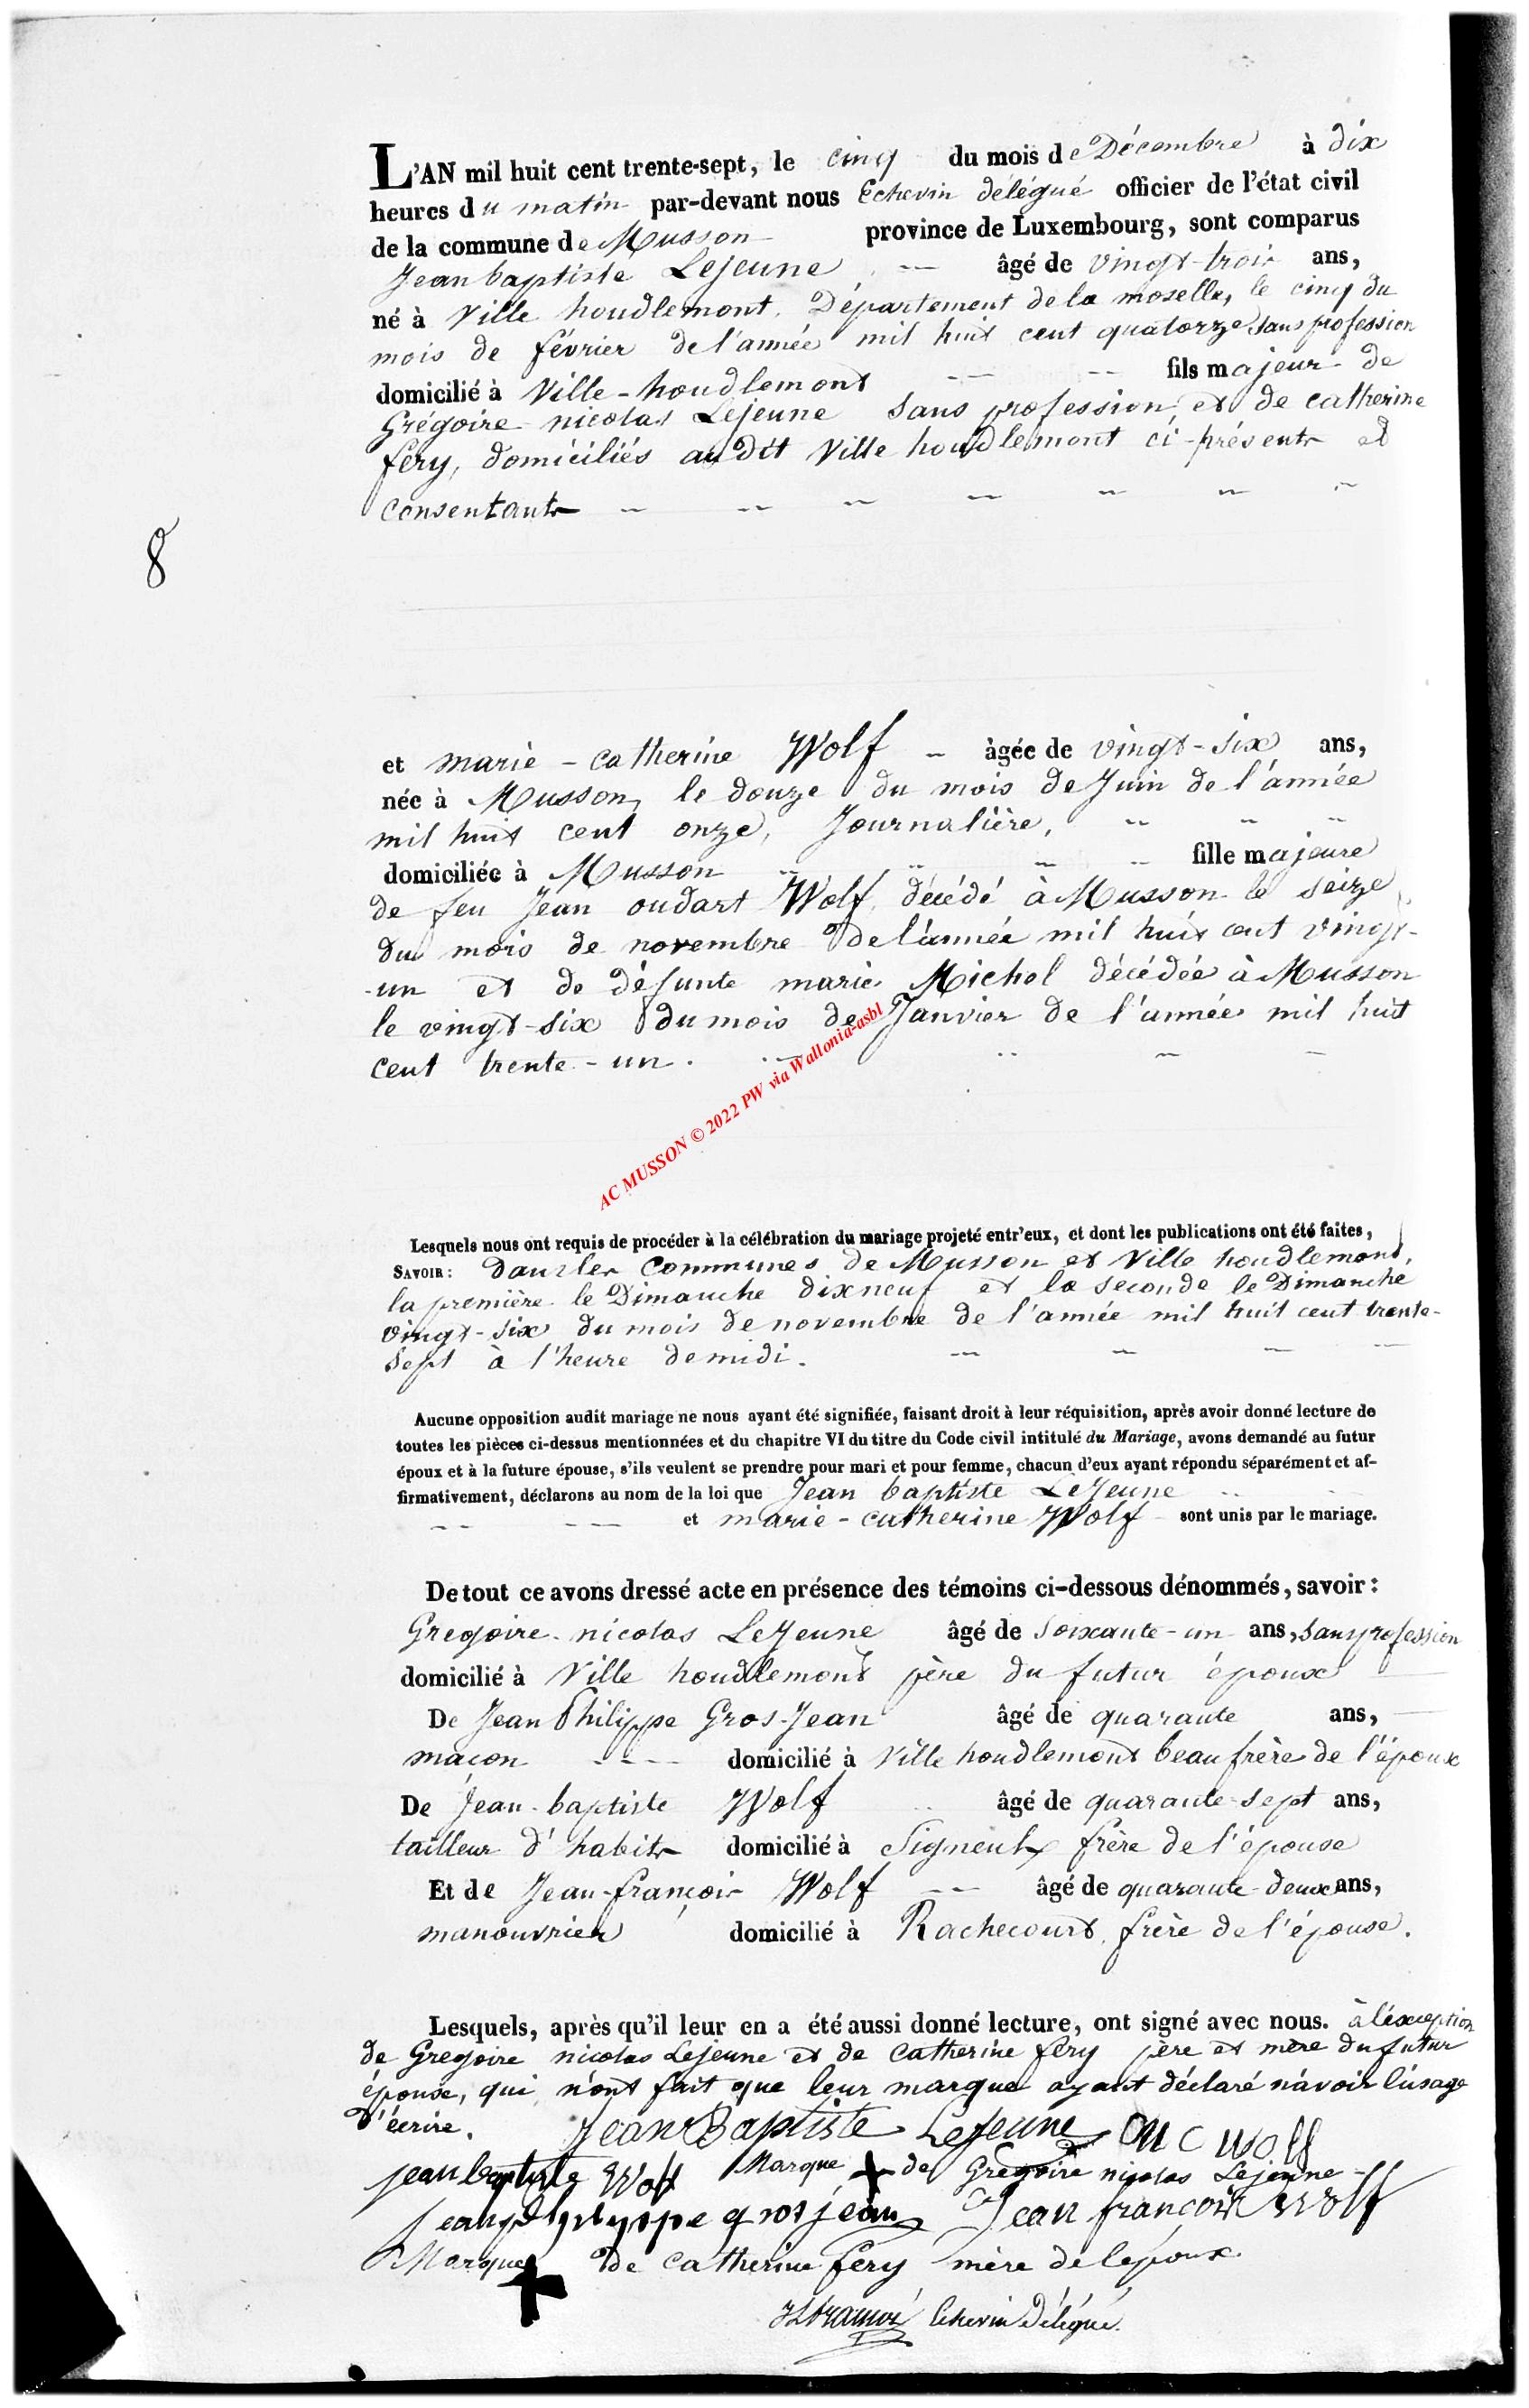 L'AN mil huit cent trente-sept, le cinq du mois de Décembre à dix
heures du matin par-devant nous Echevin délégué officier de l'état civil
de la commune de Musson province de Luxembourg, sont comparus
Jean baptiste Lejeune âgé de vingt-trois ans,
né à Ville houdlemont, Département de la moselle, le cinq du
mois de février de l'année mil huit cent quatorze, sans profession
domicilié à Ville-houdlemont fils majeur de
Grégoire nicolas Lejeune sans profession, et de catherine
fery, domiciliés audit Ville houdlemont ci-présents et
consentants
8
et marie-catherine Wolf âgée de vingt-six ans,
née à Musson, le douze du mois de Juin de l'année
mil huit cent onze, Journalière,
domiciliée à Musson fille majeure
de feu Jean oudart Wolf, décédé à Musson le seize
du mois de novembre de l'année mil huit cent vingt-
-un et de défunte marie Michel décédée à Musson
le vingt-six du mois de Janvier de l'année mil huit
cent trente-un.
AC MUSSON © 2022 PW via Wallonia-asbl
Lesquels nous ont requis de procéder à la célébration du mariage projeté entr'eux, et dont les publications ont été faites,
SAVOIR: Dans les Communes de Musson et Ville houdlemont,
la première le Dimanche dixneuf et la seconde le Dimanche
vingt-six du mois de novembre de l'année mil huit cent trente-
sept à l'heure de midi.
Aucune opposition audit mariage ne nous ayant été signifiée, faisant droit à leur réquisition, après avoir donné lecture de
toutes les pièces ci-dessus mentionnées et du chapitre VI du titre du Code civil intitulé du Mariage, avons demandé au futur
époux et à la future épouse, s'ils veulent se prendre pour mari et pour femme, chacun d'eux ayant répondu séparément et af-
firmativement, déclarons au nom de la loi que Jean baptiste LeJeune
et marie-catherine Wolf sont unis par le mariage.
De tout ce avons dressé acte en présence des témoins ci-dessous dénommés, savoir:
Gregoire-nicolas LeJeune âgé de soixante-un ans, sans profession
domicilié à Ville houdlemont père du futur époux
De Jean Philippe Gros-Jean âgé de quarante ans,
maçon domicilié à Ville houdlemont beau frère de l'époux
De Jean-baptiste Wolf âgé de quarante-sept ans,
tailleur d'habits domicilié à Signeulx frère de l'épouse
Et de Jean-françois Wolf âgé de quarante-deux ans,
manouvrier domicilié à Rachecourt, frère de l'épouse.
Lesquels, après qu'il leur en a été aussi donné lecture, ont signé avec nous. à l'éxception
de Gregoire nicolas Lejeune et de catherine fery père et mère du futur
épouse, qui n'ont fait que leur marque ayant déclaré n'avoir l'usage
d'écrire. Jean Baptiste Lejeune M C wolf
jean baptiste Wolf Marque de Gregoire nicolas Lejeune
jean phylyppe gros jean Jean françois Wolff
Marque de catherine fery mère de l'époux.
Echevin Délégué.